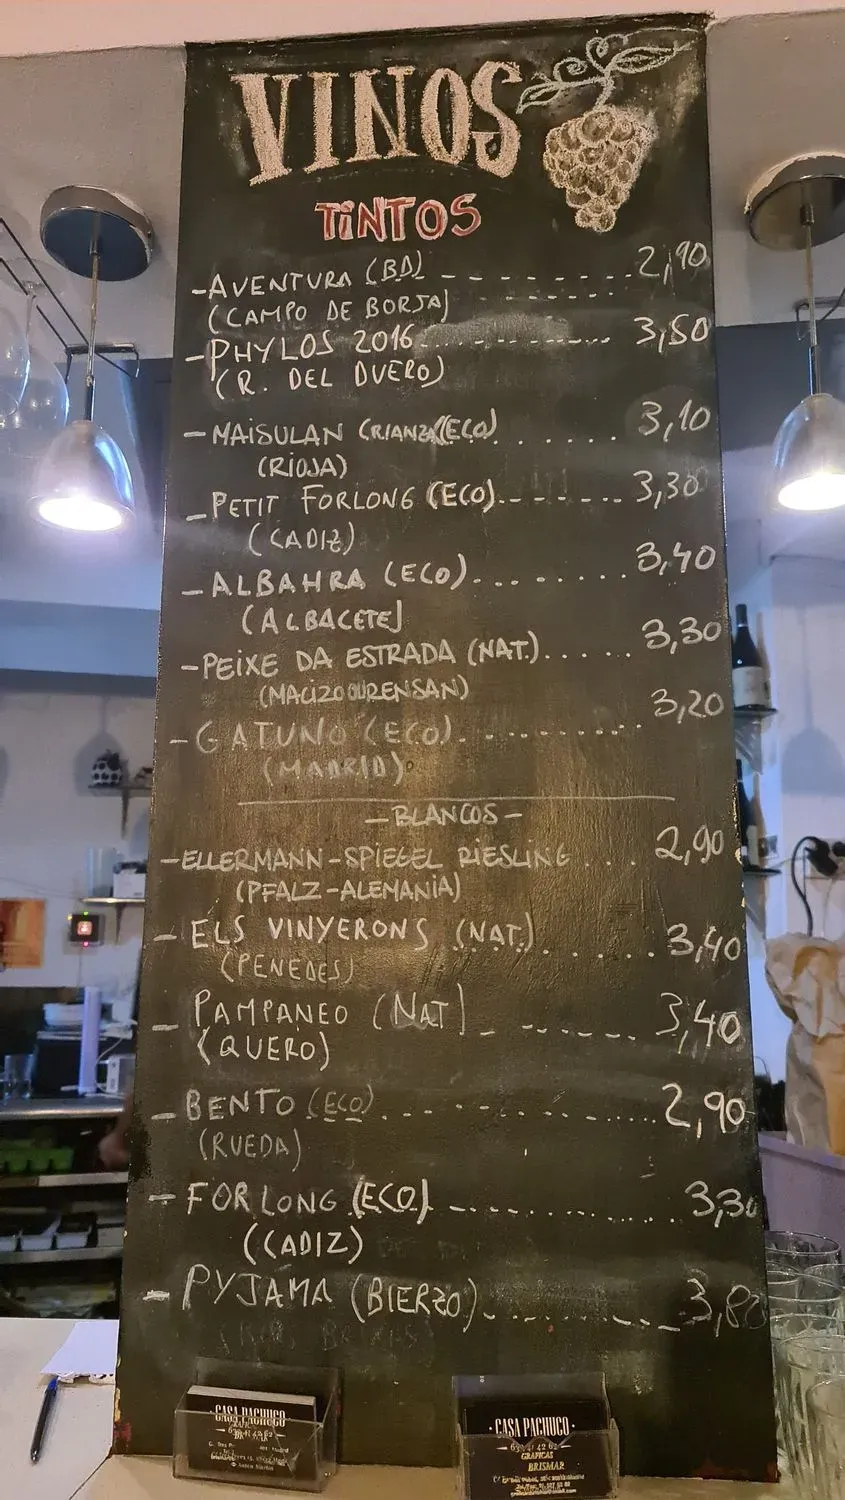 VINOS
TINTOS
-AVENTURA (BD) 2,90
(CAMPO DE BORJA)
-PHYLOS 2016 3,50
(R. DEL DUERO)
-MAISULAN CRIANZA (ECO) 3,10
(RIOJA)
-PETIT FORLONG (ECO) 3,30
(CADIZ)
-ALBAHRA (ECO) 3,40
(ALBACETE)
-PEIXE DA ESTRADA (NAT.) 3,30
(MACIZO OURENSAN)
-GATUNO (ECO) 3,20
(MADRID)
-BLANCOS-
-ELLERMANN-SPIEGEL RIESLING 2,90
(PFALZ-ALEMANIA)
-ELS VINYERONS (NAT.) 3,40
(PENEDES)
-PAMPANEO (NAT) 3,40
(QUERO)
-BENTO (ECO) 2,90
(RUEDA)
-FORLONG (ECO) 3,30
(CADIZ)
-PYJAMA (BIERZO) 3,80
CASA PACHUCO
CASA PACHUCO
GRAFICAS
BRISMAR